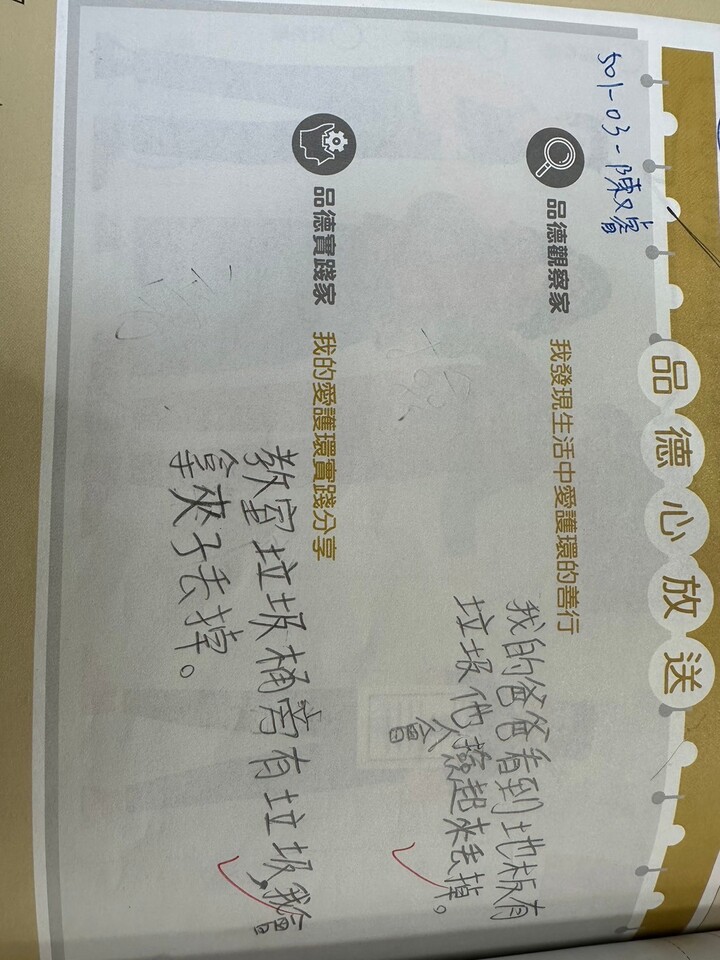 品德心放送
501-03-陳又睿
品德觀察家 我發現生活中愛護環的善行
我的爸爸看到地板有
垃圾他會撿起來丟掉。
品德實踐家 我的愛護環實踐分享
教室垃圾桶旁有垃圾,我會
拿夾子丟掉。